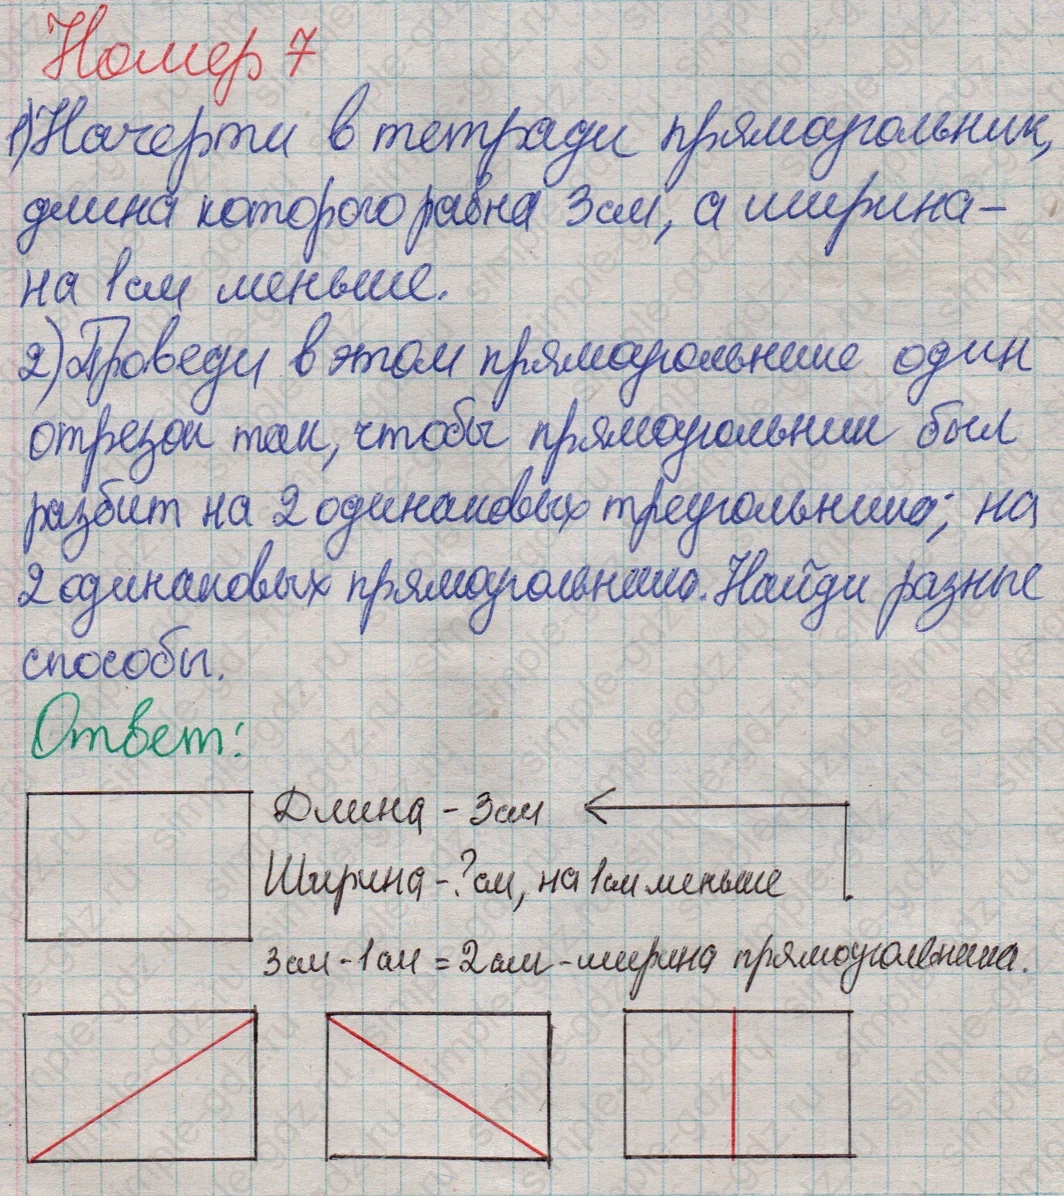 Номер 7
1) Начерти в тетради прямоугольник,
длина которого равна 3 см, а ширина –
на 1 см меньше.
2) Проведи в этом прямоугольнике один
отрезок так, чтобы прямоугольник был
разбит на 2 одинаковых треугольника; на
2 одинаковых прямоугольника. Найди разные
способы.
Ответ:
Длина – 3 см
Ширина – ? см, на 1 см меньше
3 см - 1 см = 2 см - ширина прямоугольника.
simple-gdz.ru